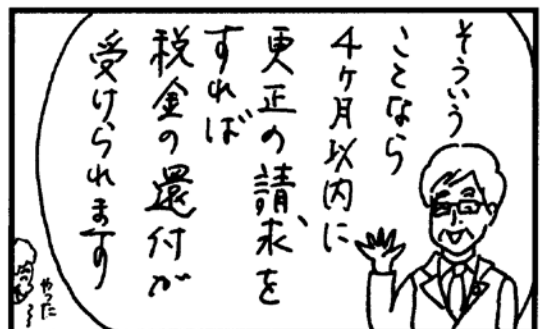 そういう
ことなら
4ヶ月以内に
更正の請求を
すれば
税金の還付が
受けられます
やった